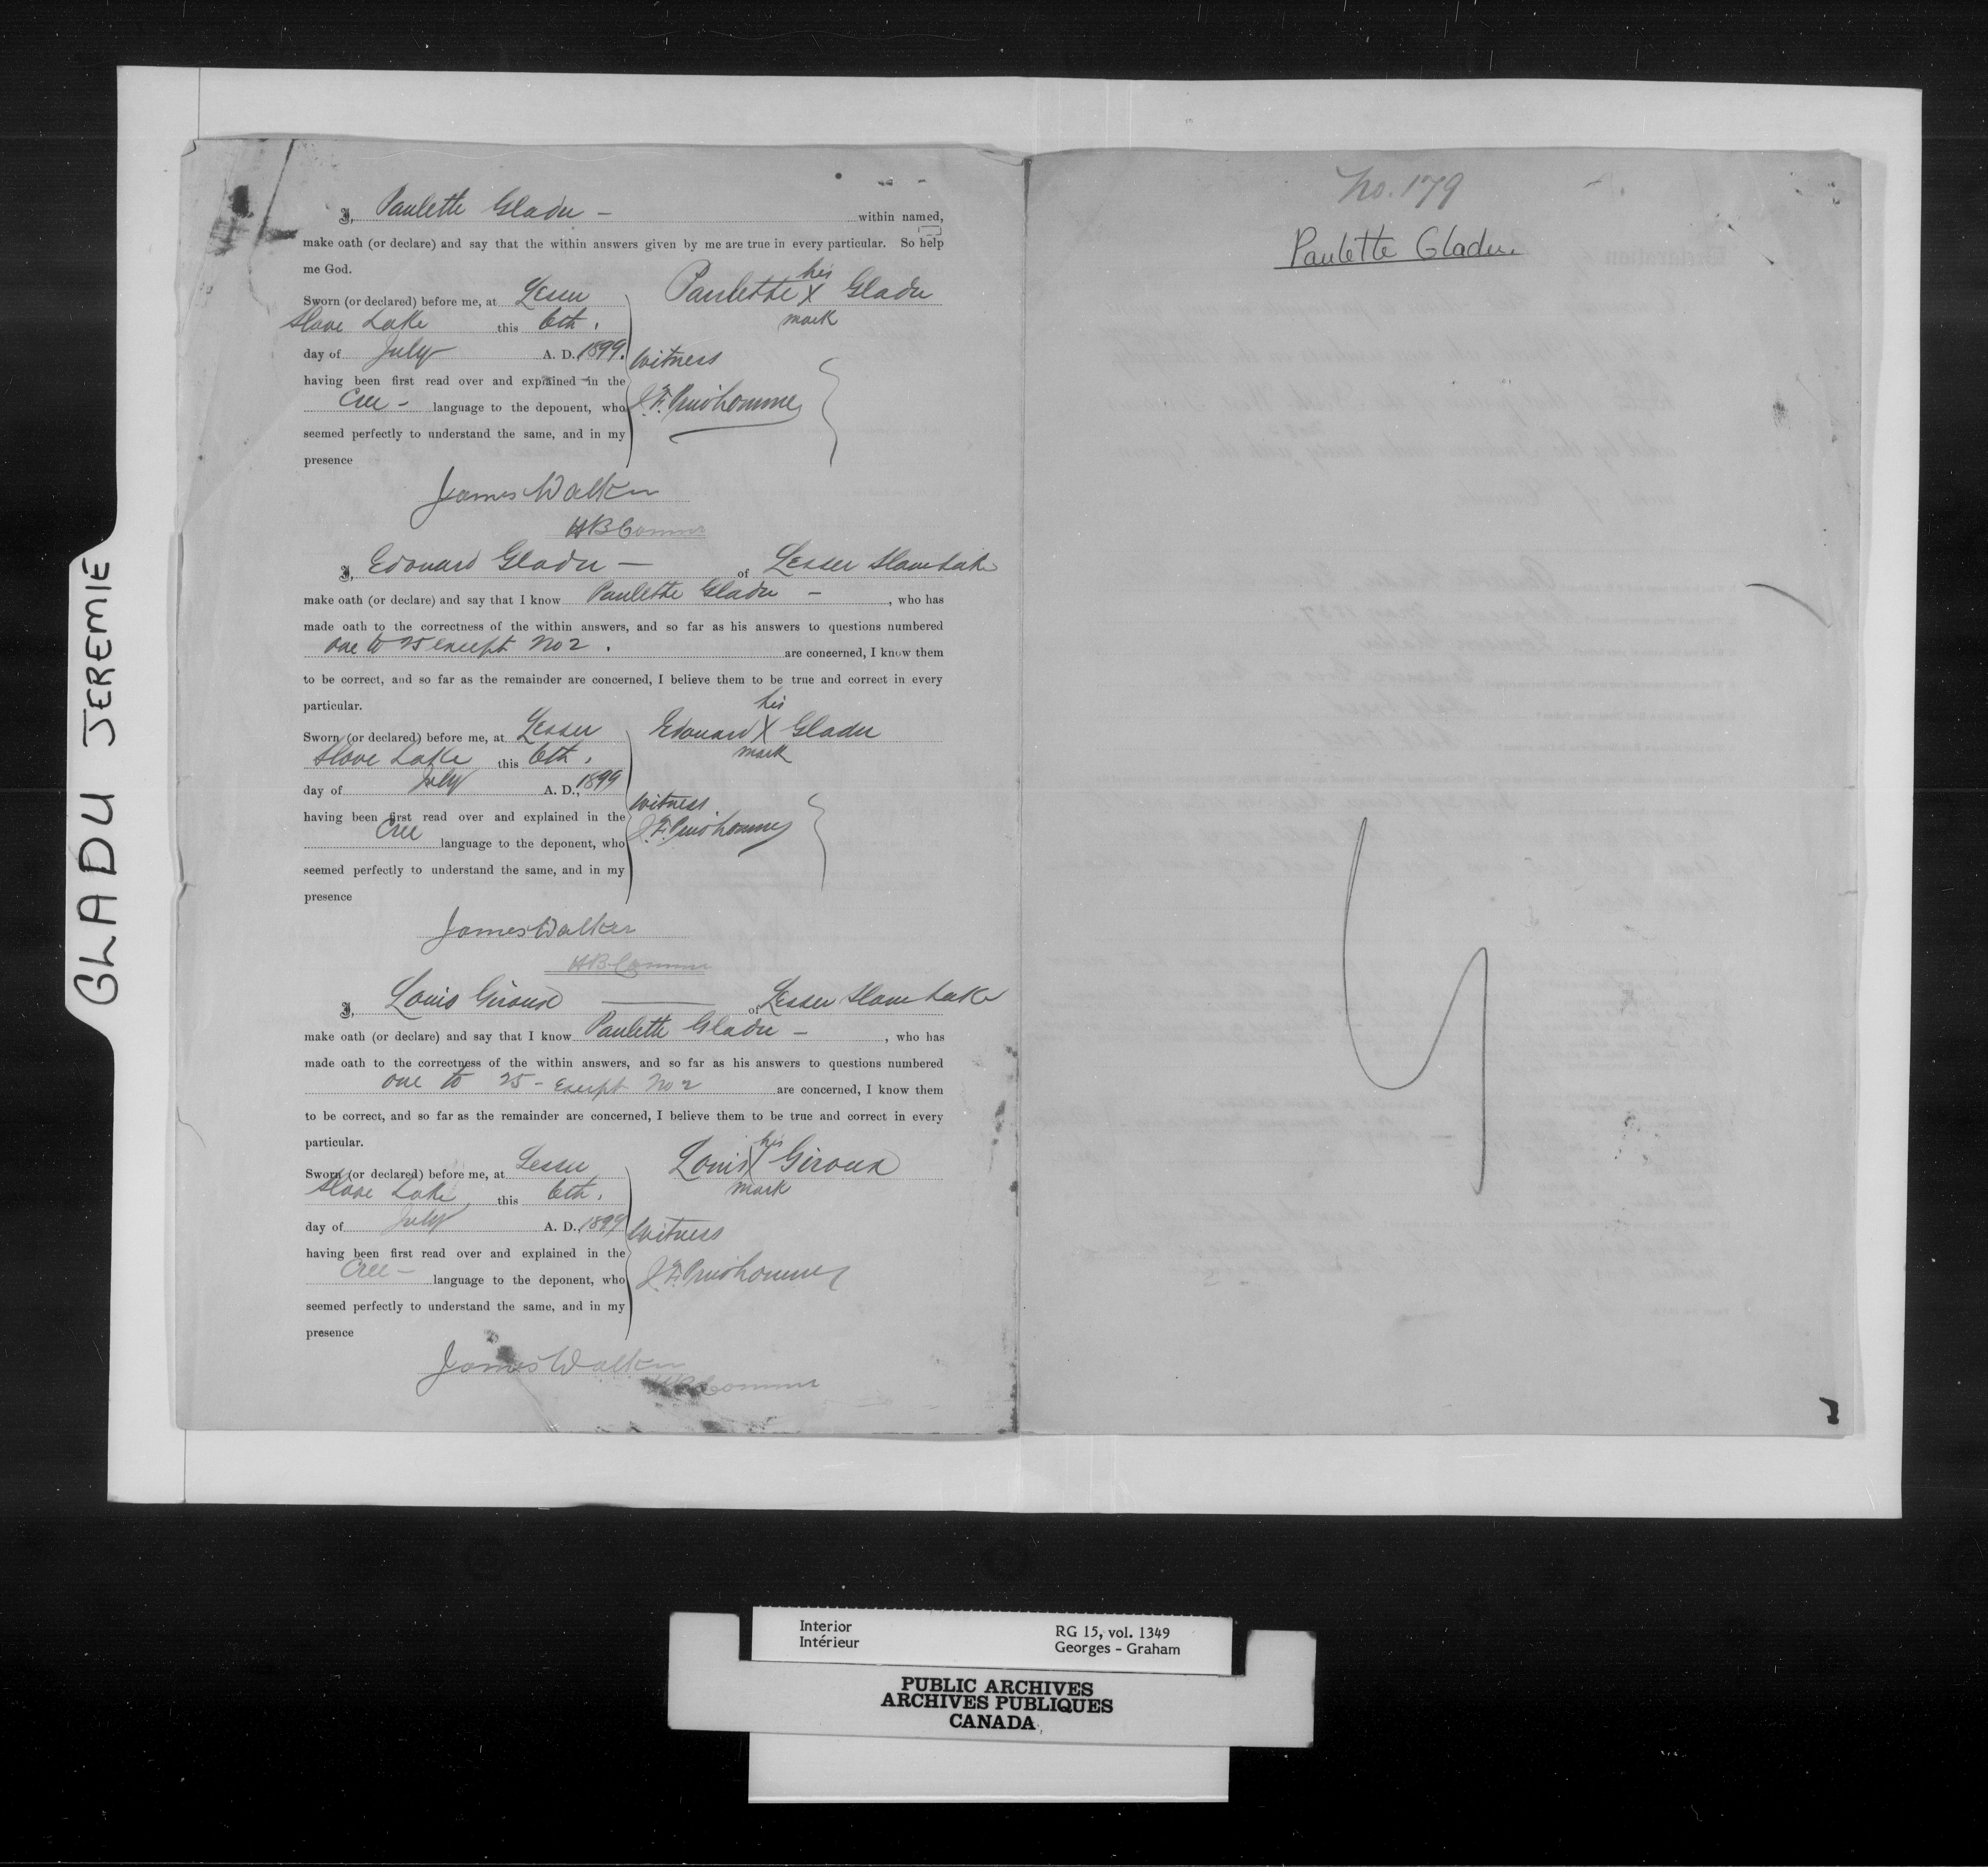 GLADU JEREMIE
I, Paulette Gladu - within named,
make oath (or declare) and say that the within answers given by me are true in every particular. So help
me God.
Sworn (or declared) before me, at Lesser
Slave Lake this 6th.
day of July A. D., 1899.
having been first read over and explained in the
Cree - language to the deponent, who
seemed perfectly to understand the same, and in my
presence
his
Paulette X Gladu
mark
Witness
J. F. Prudhomme
James Walker
HB Commr
I, Edouard Gladu - of Lesser Slave Lake
make oath (or declare) and say that I know Paulette Gladu - , who has
made oath to the correctness of the within answers, and so far as his answers to questions numbered
one to 25 except No 2. are concerned, I know them
to be correct, and so far as the remainder are concerned, I believe them to be true and correct in every
particular.
Sworn (or declared) before me, at Lesser
Slave Lake this 6th.
day of July A. D., 1899
having been first read over and explained in the
Cree language to the deponent, who
seemed perfectly to understand the same, and in my
presence
his
Edouard X Gladu
mark
Witness
J. F. Prudhomme
James Walker
HB Commr
I, Louis Giroux of Lesser Slave Lake
make oath (or declare) and say that I know Paulette Gladu - , who has
made oath to the correctness of the within answers, and so far as his answers to questions numbered
one to 25 - except No 2 are concerned, I know them
to be correct, and so far as the remainder are concerned, I believe them to be true and correct in every
particular.
Sworn (or declared) before me, at Lesser
Slave Lake this 6th.
day of July A. D., 1899
having been first read over and explained in the
Cree - language to the deponent, who
seemed perfectly to understand the same, and in my
presence
his
Louis X Giroux
mark
Witness
J. F. Prudhomme
James Walker
HB Commr
No. 179
Paulette Gladu
Interior
Intérieur
RG 15, vol. 1349
Georges - Graham
PUBLIC ARCHIVES
ARCHIVES PUBLIQUES
CANADA